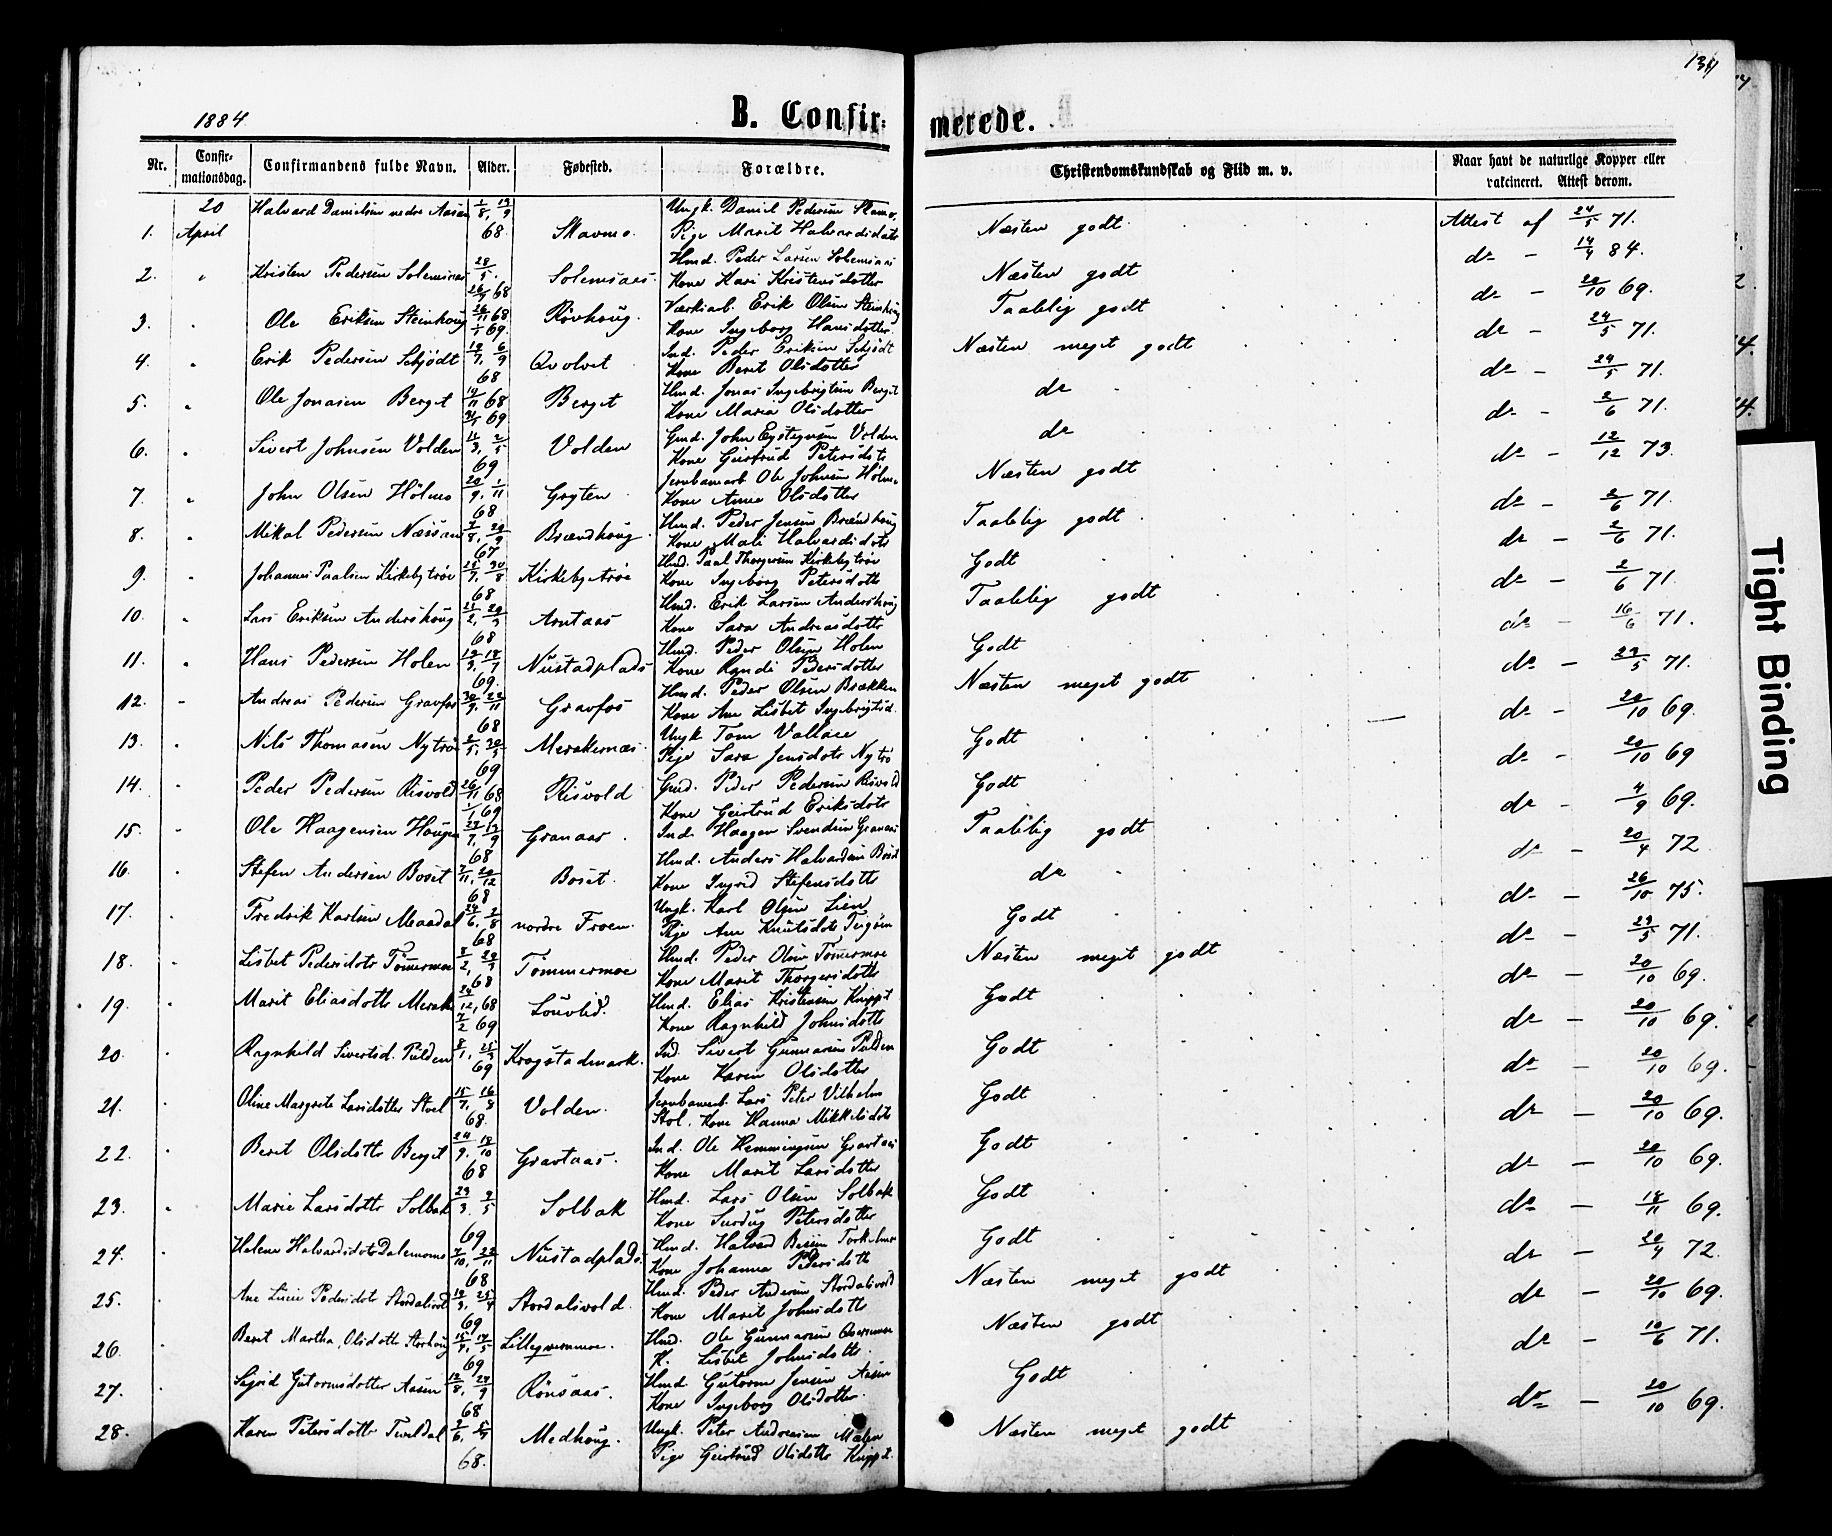 134
1884
B. Confirmerede.
Nr. Confirmationsdag. Confirmandens fulde Navn. Alder. Fødested. Forældre. Christendomskundskab og Flid m. v. Naar havt de naturlige Kopper eller vakcineret. Attest derom.
1. 20 April Halvard Danielsen nedre Aasan 68. Skavmo. Ungk. Daniel Pedersen Pige Marit Halvardsdatt Næsten godt Attest af 24/5 71.
2. " Kristen Pedersen Solemsaas 28/5 68 Solemsaas. Hmd. Peder Larsen Solemsaas Kone Kari Kristensdotter Næsten godt do - 14/4 84.
3. " Ole Eriksen Steinhoug 26/11 68 1/1 69. Rövhoug. Værksarb. Erik Olsen Steinhoug Kone Ingeborg Hansdotter Taalelig godt do - 20/10 69.
4. " Erik Pedersen Schjödt 12/7, 6/9 68 Qvolvet Ind. Peder Eriksen Schjödt Kone Berit Olsdotter Næsten meget godt do - 24/5 71.
5. " Ole Jonasen Berget 19/11 68 69 Berget Hmd. Jonas Ingebrigtsen Berget Kone Maria Olsdotter do do - 24/5 71.
6. " Sivert Johnsen Volden 11/3, 2/5 69 Volden Gmd. John Eystegnsen Volden Kone Geirtrud Petersdtr do do - 2/6 71.
7. " John Olsen Hölmo 20/9, 1/11 68 Gryten Jernbanearb Ole Johnsen Hölmo Kone Anne Olsdotter Næsten godt do - 12/12 73.
8. " Mikal Pedersen Næssan 7/8, 29/9 67 Brændhoug Hmd. Peder Jensen Brændhoug Kone Mali Halvardsdotr Taalelig godt do - 2/6 71.
9. " Johannes Paalsen Kirkebytröe 25/7, 30/8 68 Kirkebytröe Hmd. Paal Thorgersen Kirkebytröe Kone Ingeborg Petersdottr Godt do - 2/6 71.
10. " Lars Eriksen Andershoug 68 Arntaas Hmd. Erik Larsen Andershoug Kone Sara Andreasdottr Taalelig godt do - 2/6 71.
11. " Hans Pedersen Holen 69. Nustadplads Hmd. Peder Olsen Holen Kone Ryndi Pedersdotter Godt do - 16/6 71.
12. - Andreas Pedersen Gravfos 30/9, 22/11 68 Gravfos Hmd. Peder Olsen Brækken Kone Ane Lisbet Ingebrigtsd. Næsten meget godt do - 29/5 71.
13. " Nils Thomasen Nytrö 2/5, 20/5 69 Merakernæs. Ungk Tom Vallace Pige Sara Jensdotr Nytrö Godt do - 20/10 69.
14. " Peder Pedersen Risvold 26/11 68 1/1 69 Risvold Gmd. Peder Pedersen Risvold Kone Geirtrud Eriksdotr Godt do - 20/10 69
15. - Ole Haagensen Hougen 68 Granaas. Ind. Haagen Svendsen Granaas Taalelig godt do - 4/9 69.
16. " Stefen Andersen Boset 7/11, 20/12 68 Boset. Hmd. Anders Halvardsen Boset Kone Ingrid Stefensdottr do do - 20/4 72
17. " Fredrik Karlsen Maadal 68 nordre Froen. Ungk. Karl Olsen Lien Pige Ane Knutsdotr Godt do - 26/10 75.
18. " Lisbet Pedersdotr Tömmermoe 68 Tömmermoe Hmd. Peder Olsen Tömmermoe Kone Marit Thorgersdottr Næsten meget godt do - 29/5 71.
19. " Marit Eliasdottr Merak 24/12, 68 7/2 69 Löuvlid. Hmd. Elias Kristensen Kone Ragnhild Johnsdottr Godt do - 20/10 69.
20. " Ragnhild Sivertsd. Pulden 8/1, 25/3 69 Krogstadmark. Ind. Sivert Gunnarsen Pulden Kone Karen Olsdotter Godt do - 20/10 69.
21. " Oline Margrete Larsdotter Stoel 15/7, 16/8 68. Volden. Jernbanearb. Lars Peter Vilhelm Stol. Kone Hanna Mikkelsdotr Godt do - 20/10 69.
22. " Berit Olsdottr Berget 24/9, 18/10 68 Gravtaas. Ind. Ole Hemmingsen Gravtaas Kone Marit Larsdotter Godt do - 20/10 69.
23. " Marie Larsdottr Solbak 29/3, 9/5 69 Solbak Hmd. Lars Olsen Solbak Kone Petersdotter Godt do - 20/10 69.
24. " Helene Halvardsdotr Dalemoms 7/10, 22/11 68 Nustadplads. Hmd. Halvard Kone Johanna Pedersdottr Godt do - 18/11 69.
25. " Ane Lucie Pedersdotr Stordalsvold 19/3, 25/4 69 Stordalsvold. Hmd. Peder Andersen Stordalsvold Kone Marit Johnsdottr Næsten meget godt do - 20/4 72.
26. " Berit Martha Olsdottr Storhoug 69 Lillegvernmoe. Hmd. Ole Gunnarsen K. Lisbet Johnsdottr. Næsten godt do - 20/10 69.
27. " Sigrid Gutormsdotter Aasen 12/8, 29/9 68 Rönsaas. Hmd. Gutorm Jensen Aasen Kone Ingeborg Olsdotter. Godt do - 10/6 71.
28. " Karen Petersdottr Teveldal 68. Medhoug. Ungk. Peter Andreasen Pige Geirtrud Olsdottr Næsten meget godt do - 20/10 69.
Tight Binding